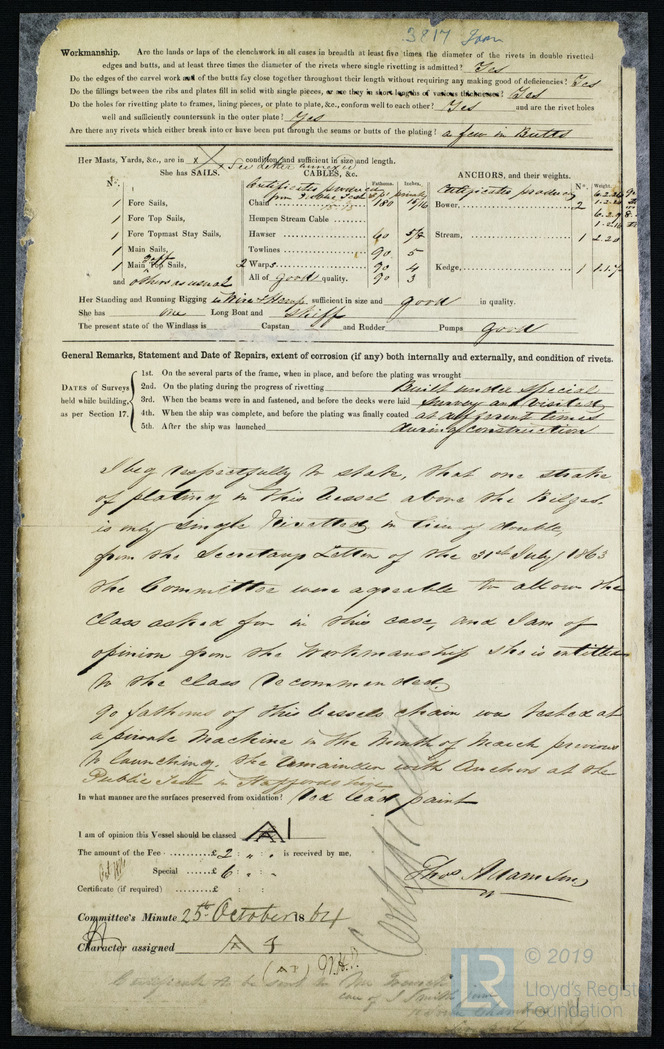 3817 Iron
Workmanship. Are the lands or laps of the clenchwork in all cases in breadth at least five times the diameter of the rivets in double rivetted
edges and butts, and at least three times the diameter of the rivets where single rivetting is admitted? Yes
Do the edges of the carvel work and of the butts fay close together throughout their length without requiring any making good of deficiencies? Yes
Do the fillings between the ribs and plates fill in solid with single pieces, or are they in short lengths of various thicknesses? Yes
Do the holes for rivetting plate to frames, lining pieces, or plate to plate, &c., conform well to each other? Yes and are the rivet holes
well and sufficiently countersunk in the outer plate? Yes
Are there any rivets which either break into or have been put through the seams or butts of the plating? a few in Butts
Her Masts, Yards, &c., are in condition, and sufficient in size and length.
x See letter annexed
She has SAILS. CABLES, &c. ANCHORS, and their weights.
N°. Fathoms. Inches. N°. Weight.
Certificates produced Certificates produced
1 Fore Sails, Chain 180 15/16 Bower, 2
1 Fore Top Sails, Hempen Stream Cable
1 Fore Topmast Stay Sails, Hawser 60 5/8 Stream, 1 2.20
1 Main Sails, Towlines 90 5
1 Main Gaff Top Sails, 2 Warps 90 4 Kedge, 1 1.1.7
and others as usual All of good quality. 90 3
Her Standing and Running Rigging is Wire & Hemp sufficient in size and good in quality.
She has one Long Boat and Skiff
The present state of the Windlass is Capstan and Rudder Pumps good
General Remarks, Statement and Date of Repairs, extent of corrosion (if any) both internally and externally, and condition of rivets.
DATES of Surveys held while building, as per Section 17.
1st. On the several parts of the frame, when in place, and before the plating was wrought
2nd. On the plating during the progress of rivetting Built under special
3rd. When the beams were in and fastened, and before the decks were laid survey and visited
4th. When the ship was complete, and before the plating was finally coated at different times
5th. After the ship was launched during construction
I beg respectfully to state, that one strake
of plating in this Vessel above the Bilges,
is only single Rivetted, in lieu of double,
from the Secretarys Letter of the 31st July 1863
the Committee were agreeable to allow the
class asked for in this case, and I am of
opinion from the Workmanship she is entitled
to the class recommended.
90 fathoms of this Vessels chain was tested at
a private Machine in the Month of March previous
to launching. The remainder with Anchors at the
Public Test in Staffordshire
In what manner are the surfaces preserved from oxidation? Red lead paint
I am of opinion this Vessel should be classed A1
The amount of the Fee £ 2 : " : " is received by me,
Special £ 6 : " : "
Certificate (if required) £ : :
Thos Adamson
Committee's Minute 25th October 1864
Character assigned A
Certificate to be sent to Mr
care of J Smith
© 2019
LR
Lloyd's Register
Foundation